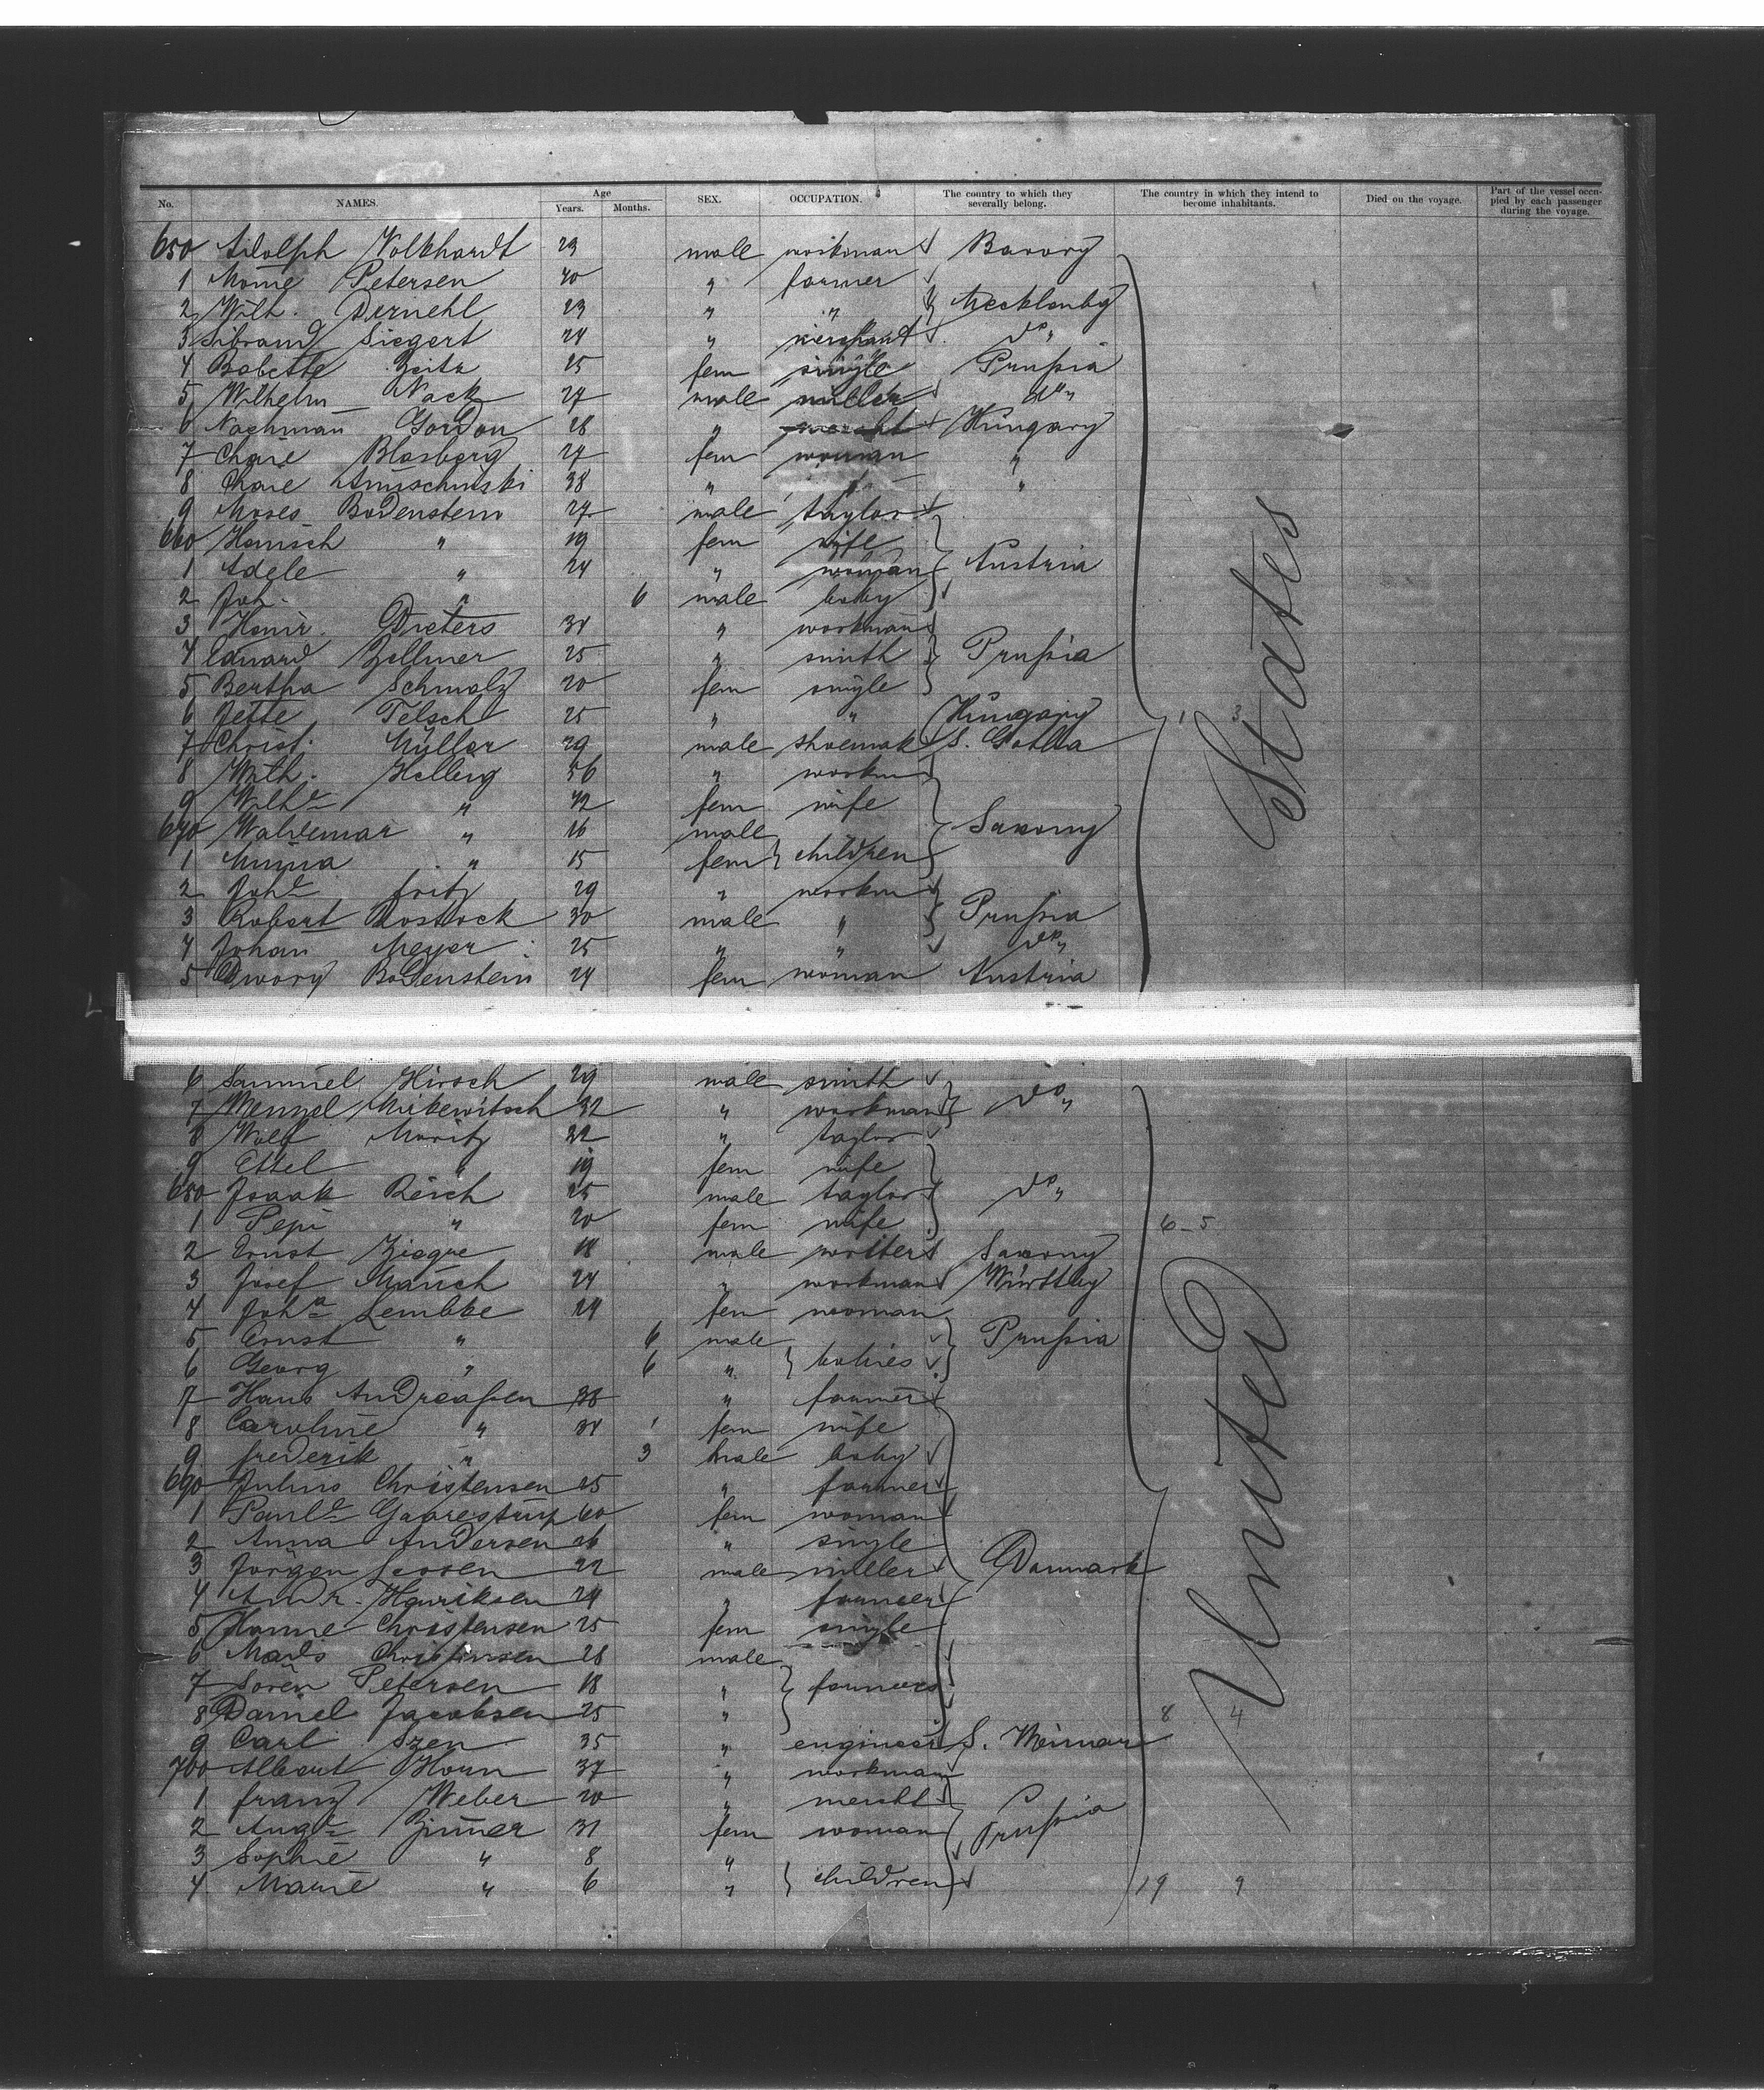 No. NAMES. Age Years. Months. SEX. OCCUPATION. The country to which they severally belong. The country in which they intend to become inhabitants. Died on the voyage. Part of the vessel occupied by each passenger during the voyage.
650 Adolph Volkhardt 23 male workman Bavory
1 Mome Petersen 40 " farmer
2 Wilh. Diruehl 23 " " Mecklenbg
3 Sibrand Siegert 24 " merchant do "
4 Babette Zeitz 25 fem single Prußia
5 Wilhelm Nack 27 male miller do "
6 Nachman Gordon 28 " mercht Hungary
7 Chaie Blasberg 27 fem woman "
8 Chaie 38 " " "
9 Moses Bodenstein 27 male taylor
660 Hensch " 19 fem wife
1 Adele " 24 " woman Austria
2 Joh. " 6 male baby
3 Heinr. Dieters 34 " workman
4 Eduard Zellmer 25 " smith Prußia
5 Bertha Schmalz 20 fem single
6 Jette Telsch 25 " " Hungary
7 Christ. Müller 29 male shoemak S. Gotha
8 Wilh. Helbig 56 " workm
9 Wilhe " 42 fem wife
670 Waldemar " 16 male Saxony
1 Minna " 15 fem children
2 Johe Fritz 29 " workm
3 Robert Rostock 30 male " Prußia
4 Johan Meyer 25 " " do "
5 Dwory Bodenstein 24 fem woman Austria
6 Samuel Hirsch 29 male smith
7 Menzel Mikewitsch 32 " workman do "
8 Wolf Moritz 22 " taylor
9 Ettel " 19 fem wife
680 Isaak Reich 25 male taylor do "
1 Pepi " 20 fem wife 6-5
2 Ernst Ziegre 18 male Saxony
3 Josef Mauch 24 " workman Württbg
4 Joha Lembke 24 fem woman
5 Ernst " 6 male Prußia
6 Georg " 6 " babies
7 Hans Andreaßen 38 " farmer
8 Caroline " 34 fem wife
9 Frederik " 3 male baby
690 Julius Christensen 25 " farmer
1 Paule Gaarestrup 60 fem woman
2 Anna Andersen 26 " single
3 Jörgen Lassen 22 male miller Danmark
4 Andr. Henriksen 24 " farmer
5 Hanne Christensen 25 fem single
6 Mads Christensen 28 male
7 Sören Petersen 18 " farmers
8 Daniel Jacobsen 25 " 8 4
9 Carl Szen 35 " engineer S. Weimar
700 Albert Horn 37 " workman
1 Franz Weber 20 " mercht
2 Auge Zimer 31 fem woman Prußia
3 Sophie " 8 "
4 Marie " 6 " children 19 9
United States
1 3